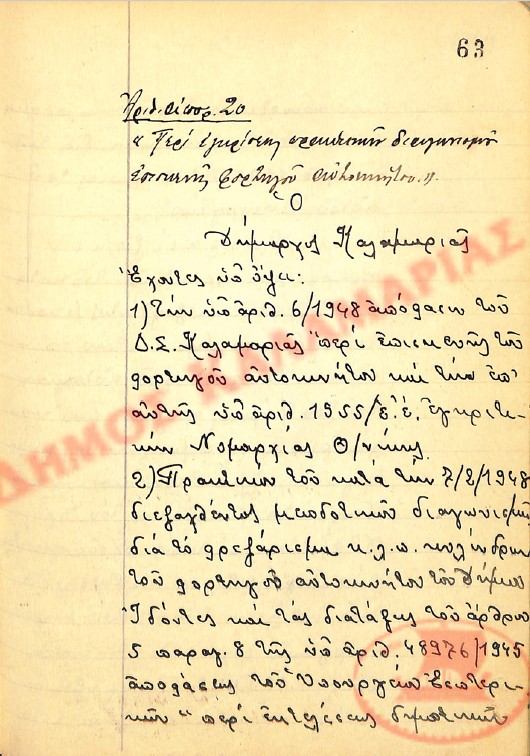 63
Ἀριθ. ἀποφ. 20
« Περί ἐγκρίσεως πρακτικοῦ διαγωνισμοῦ
ἐπισκευῆς φορτηγοῦ αὐτοκινήτου ».
Ὁ
Δήμαρχος Καλαμαριᾶς
Ἔχοντες ὑπ' ὄψει:
1) Τήν ὑπ' ἀριθ. 6/1948 ἀπόφασιν τοῦ
Δ.Σ. Καλαμαριᾶς περί ἐπισκευῆς τοῦ
φορτηγοῦ αὐτοκινήτου καί τήν ἐπ'
αὐτῆς ὑπ' ἀριθ. 1955/ἐ.ἔ. ἐγκριτι-
κήν Νομαρχίας Θ/νίκης.
2) Πρακτικόν τοῦ κατά τήν 7/2/1948
διεξαχθέντος μειοδοτικοῦ διαγωνισμοῦ
διά τό φρεζάρισμα κ.λ.π. κυλίνδρων
τοῦ φορτηγοῦ αὐτοκινήτου τοῦ Δήμου
Ἰδόντες καί τάς διατάξεις τοῦ ἄρθρου
5 παραγ. 8 τῆς ὑπ' ἀριθ. 48976/1945
ἀποφάσεως τοῦ Ὑπουργείου Ἐσωτερι-
κῶν " περί ἐκτελέσεως δημοτικῶν
ΔΗΜΟΣ ΚΑΛΑΜΑΡΙΑΣ